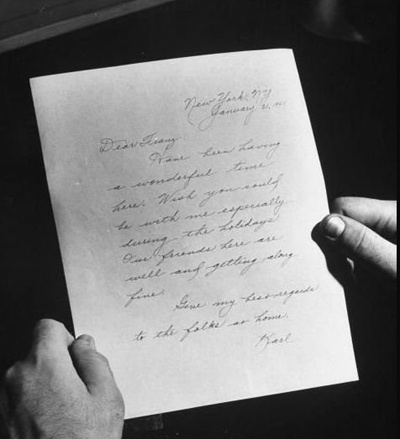 New York, N.Y.
January 21,
Dear Franz,
Have been having
a wonderful time
here. Wish you could
be with me especially
during the holidays.
Our friends here are
well and getting along
fine.
Give my best regards
to the folks at home.
Karl